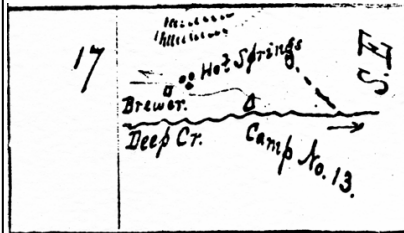 17
Hot Springs
S.E
Brewer.
Deep Cr.
Camp No. 13.